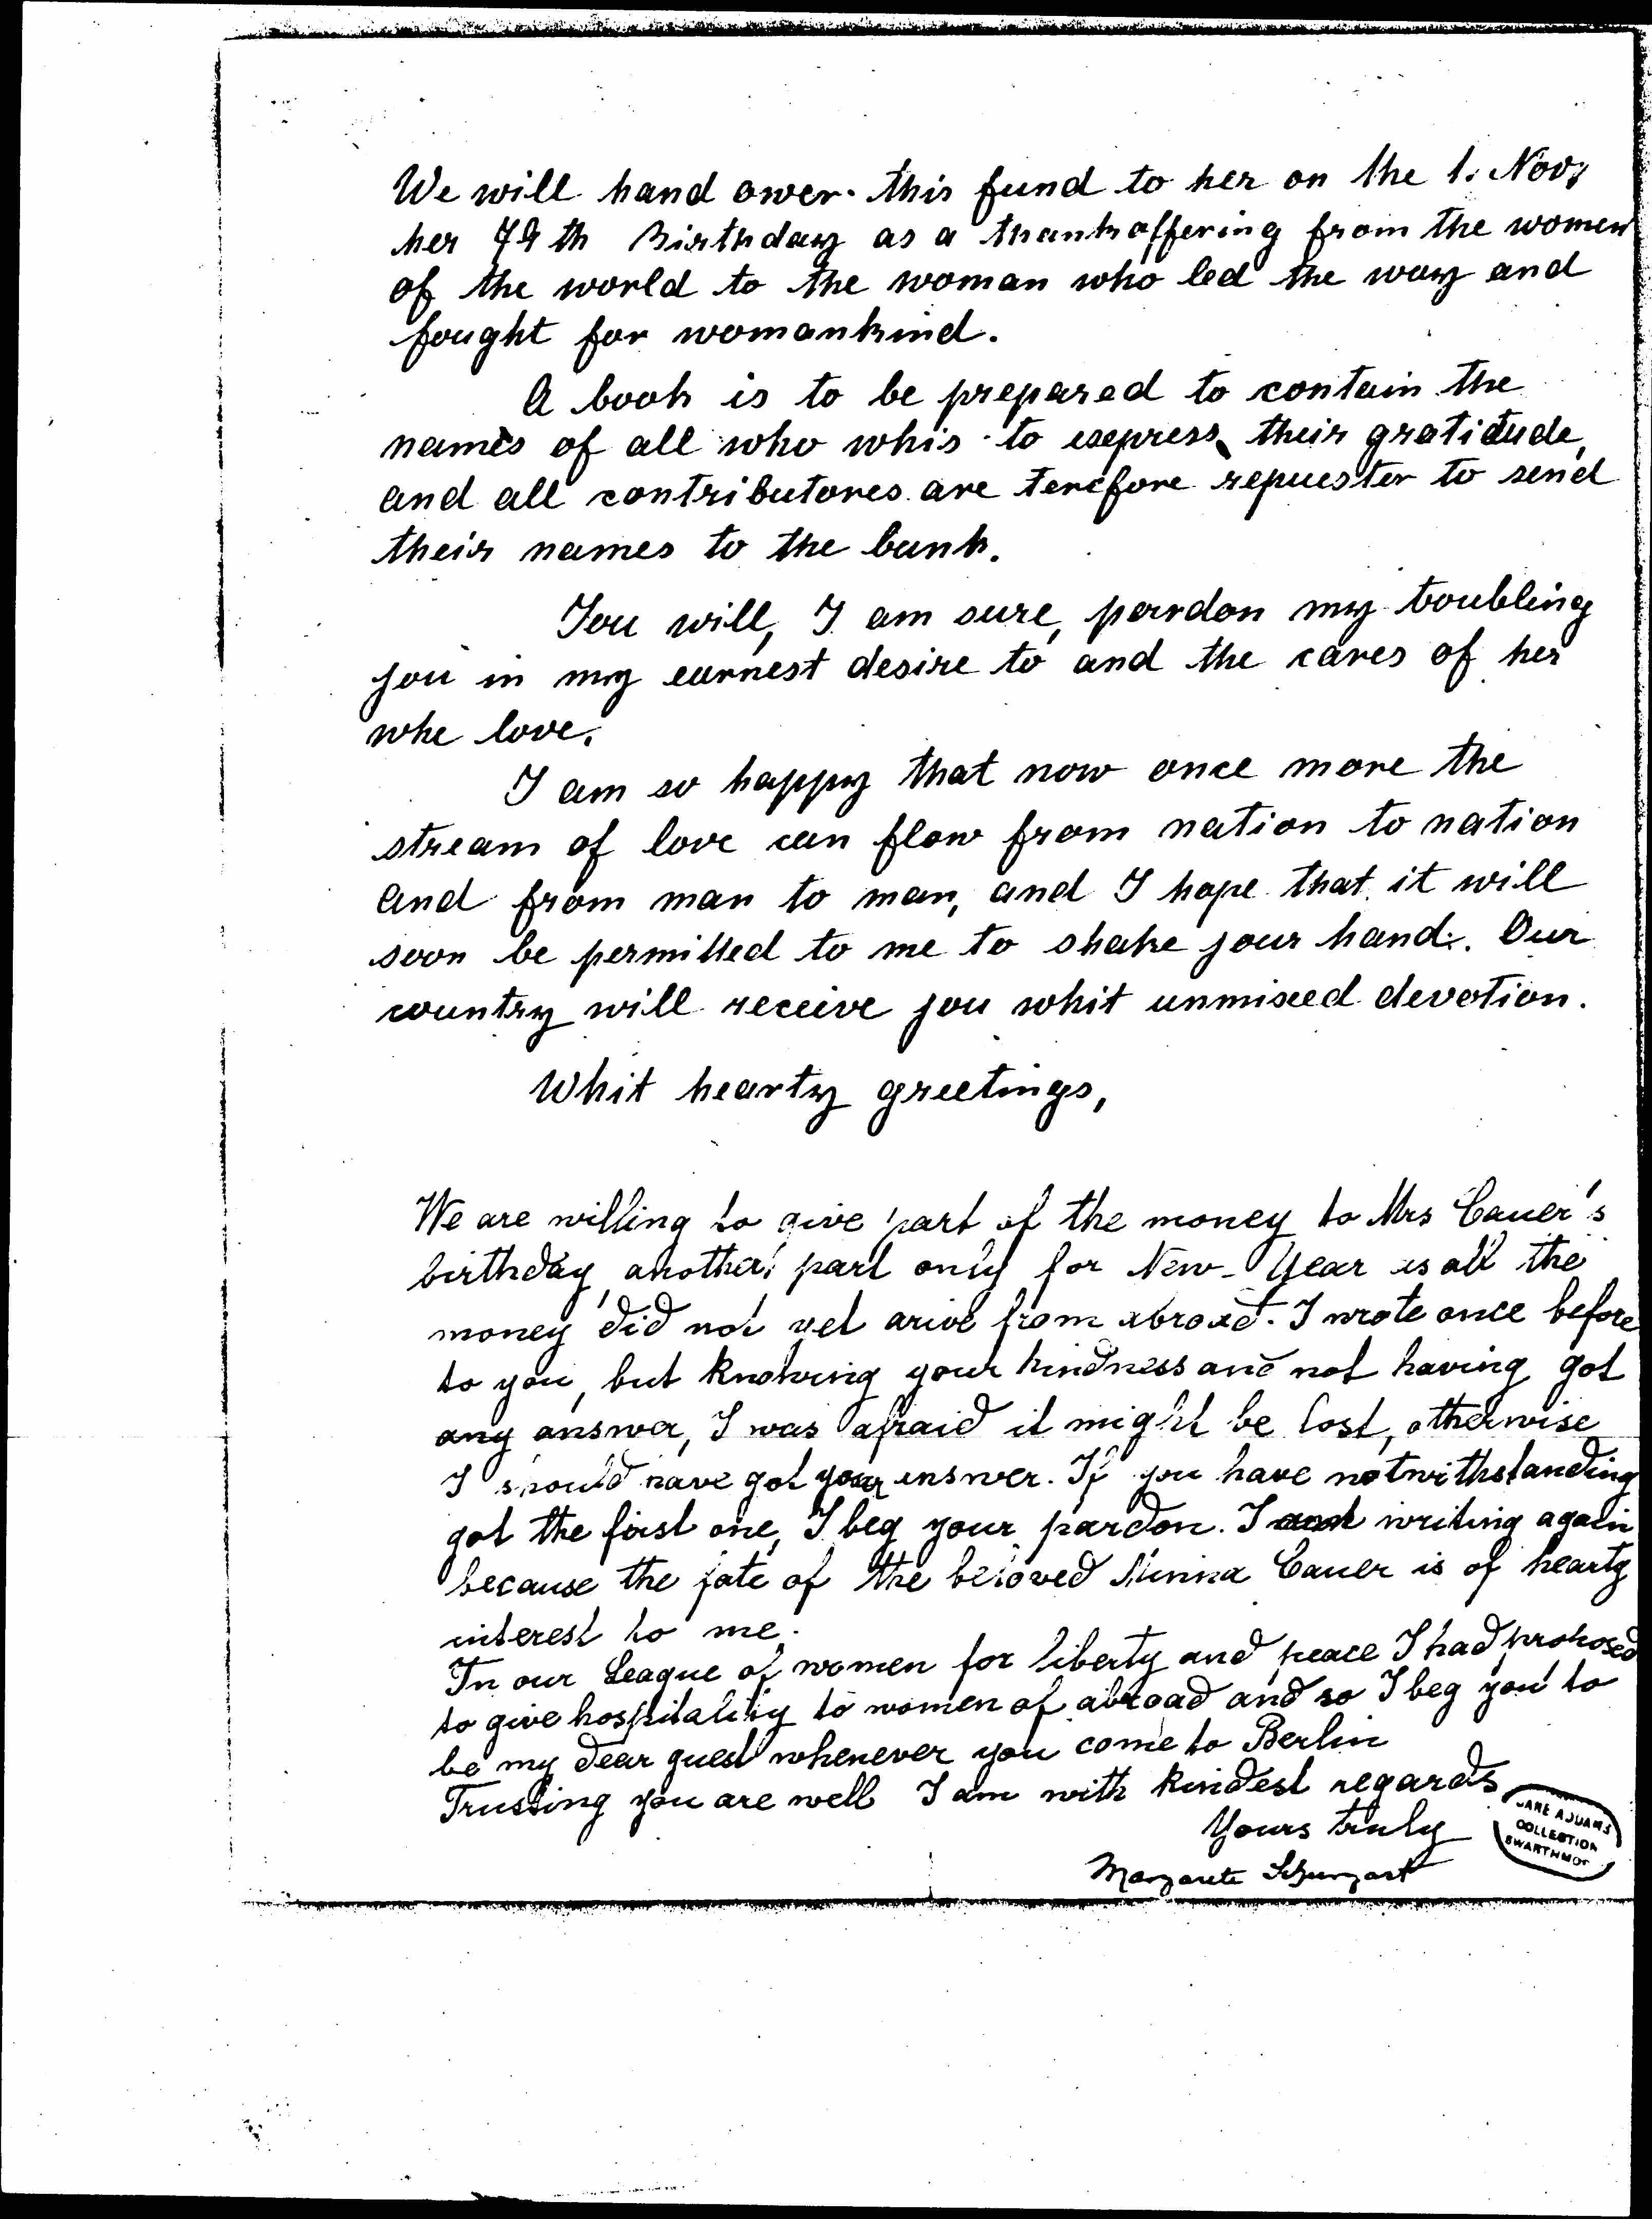 We will hand ower this fund to her on the 1. Nov,
her 79th Birthday as a thankoffering from the women
of the world to the woman who led the way and
fought for womankind.
A book is to be prepared to contain the
names of all who whis to express their gratidude,
and all contributores are terefore requester to send
their names to the bank.
You will, I am sure, pardon my toubling
jou in my earnest desire to and the cares of her
whe love.
I am so happy that now once more the
stream of love can flow from nation to nation
and from man to man, and I hope that it will
soon be permitted to me to shake jour hand. Our
country will receive jou whit unmixed devotion.
Whit hearty greetings,
We are willing to give part of the money to Mrs Cauer's
birthday, another part only for New-Year as all the
money did not yet arive from abroad. I wrote once before
to you, but knowing your kindness and not having got
any answer, I was afraid it might be lost, otherwise
I should have got your answer. If you have notwithstanding
got the first one, I beg your pardon. I am writing again
because the fate of the beloved Minna Cauer is of hearty
interest to me.
In our League of women for liberty and peace I had proposed
to give hospitality to women of abroad and so I beg you to
be my dear guest whenever you come to Berlin
Trusting you are well I am with kindest regards
Yours truly
Margarete
JANE ADDAMS
COLLECTION
SWARTHMOR